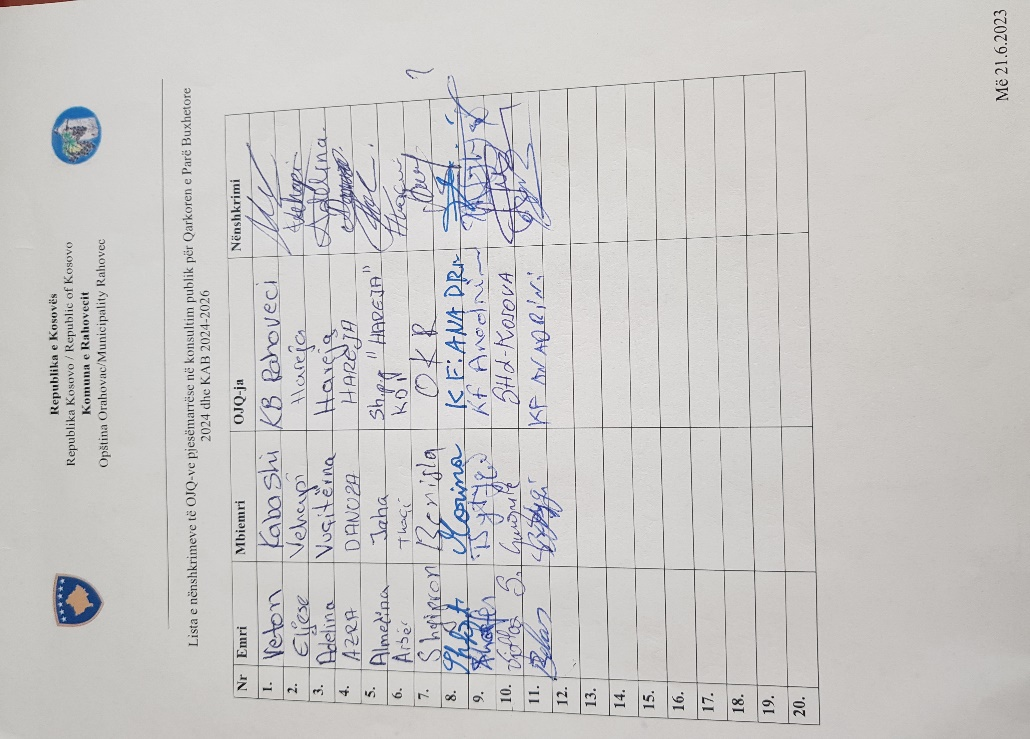 Republika e Kosovës
Republika Kosovo / Republic of Kosovo
Komuna e Rahovecit
Opština Orahovac/Municipality Rahovec
Lista e nënshkrimeve të OJQ-ve pjesëmarrëse në konsultim publik për Qarkoren e Parë Buxhetore
2024 dhe KAB 2024-2026
Nr Emri Mbiemri OJQ-ja Nënshkrimi
1. Veton Kabashi KB Rahoveci
2. Eljesë Vehapi Hareja Vehapi
3. Adelina Vuçitërna Hareja Adelina
4. AZRA DANUZA HAREJA
5. Almedina Jaha Sh.p.k "HAREJA"
6. Arbër Thaçi KDI Thaçi
7. Shqipron Benisla OKR
8. Morina KF: ANADRI
9. KF Anadrini
10. SHd-Kosova
11. KF ANADRINI
12.
13.
14.
15.
16.
17.
18.
19.
20.
Më 21.6.2023